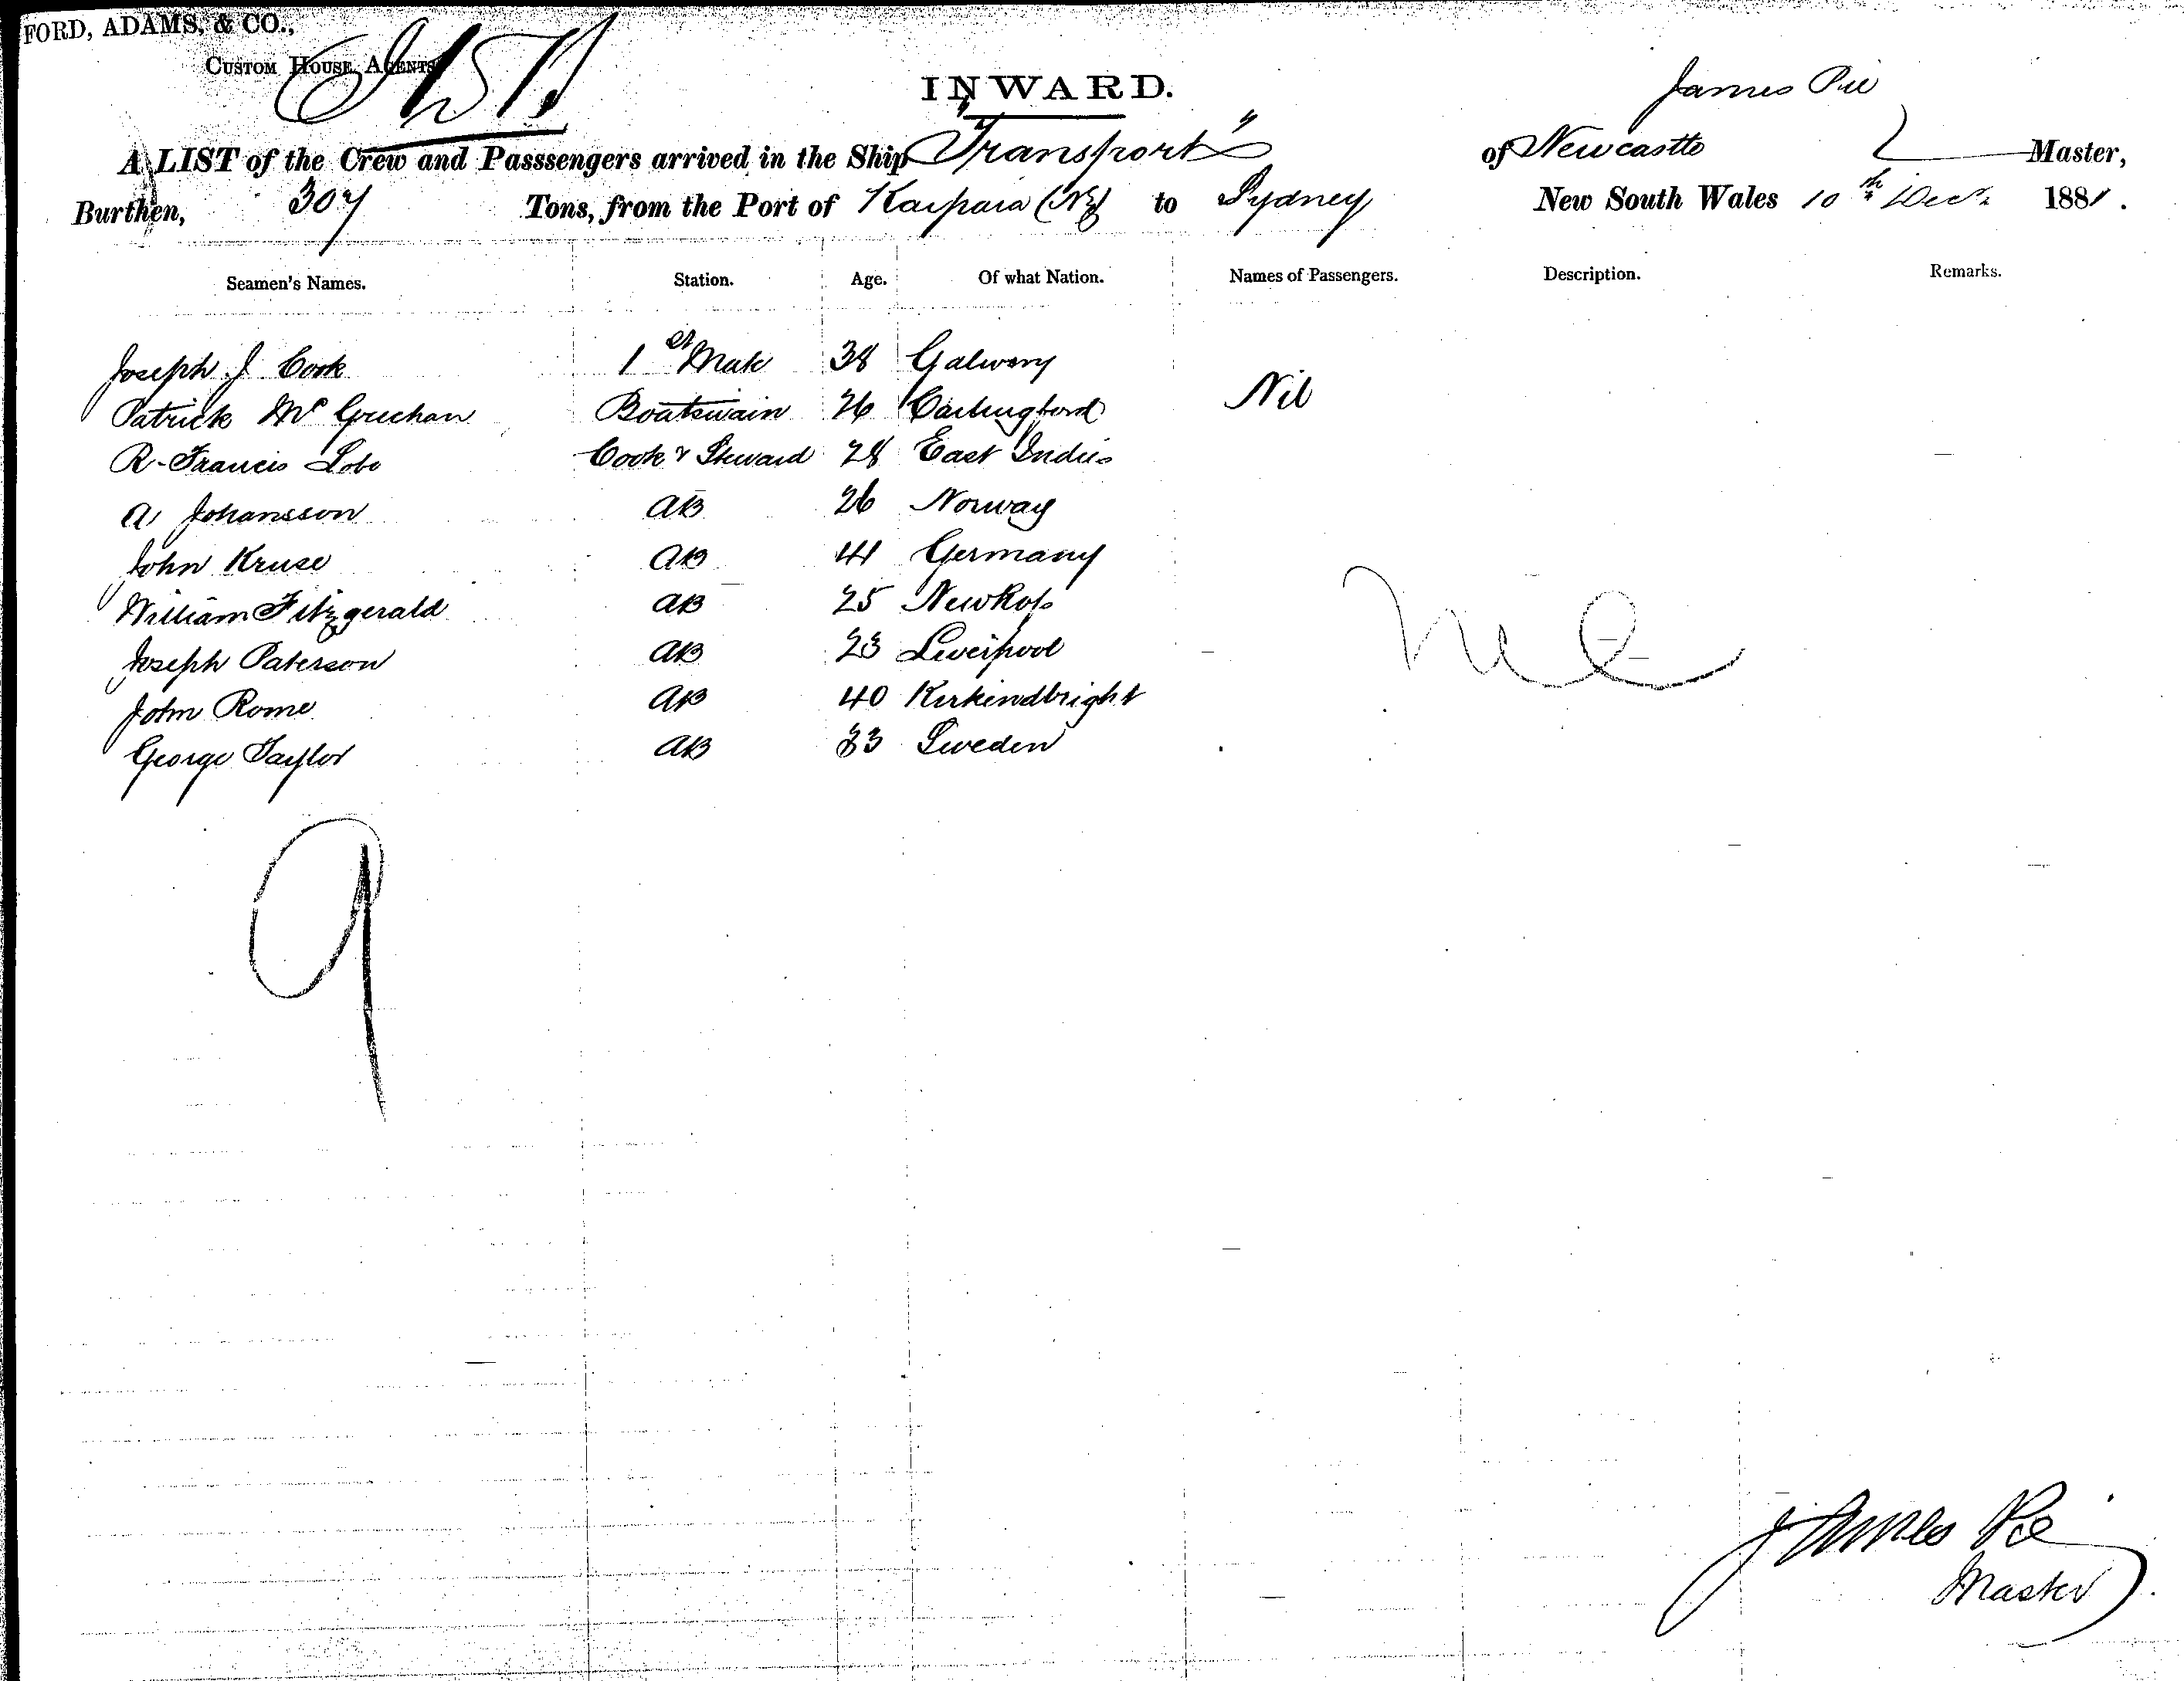 FORD, ADAMS, & CO.,
CUSTOM HOUSE AGENTS
INWARD.
James Pie
A LIST of the Crew and Passsengers arrived in the Ship "Transport" of Newcastle Master,
Burthen, 307 Tons, from the Port of Kaipara (NZ) to Sydney New South Wales 10th Decr 1881.
Seamen's Names. Station. Age. Of what Nation. Names of Passengers. Description. Remarks.
Joseph J Cook 1st Mate 38 Galway
Patrick Mc Guchan Boatswain 26 Carlingford Nil
R. Francis Lobo Cook & Steward 28 East Indies
A Johansson AB 26 Norway
John Kruse AB 41 Germany
William Fitzgerald AB 25 New Ross
Joseph Paterson AB 23 Liverpool
Nil
John Rome AB 40 Kirkindbright
George Taylor AB 33 Sweden
9
James Pie
Master